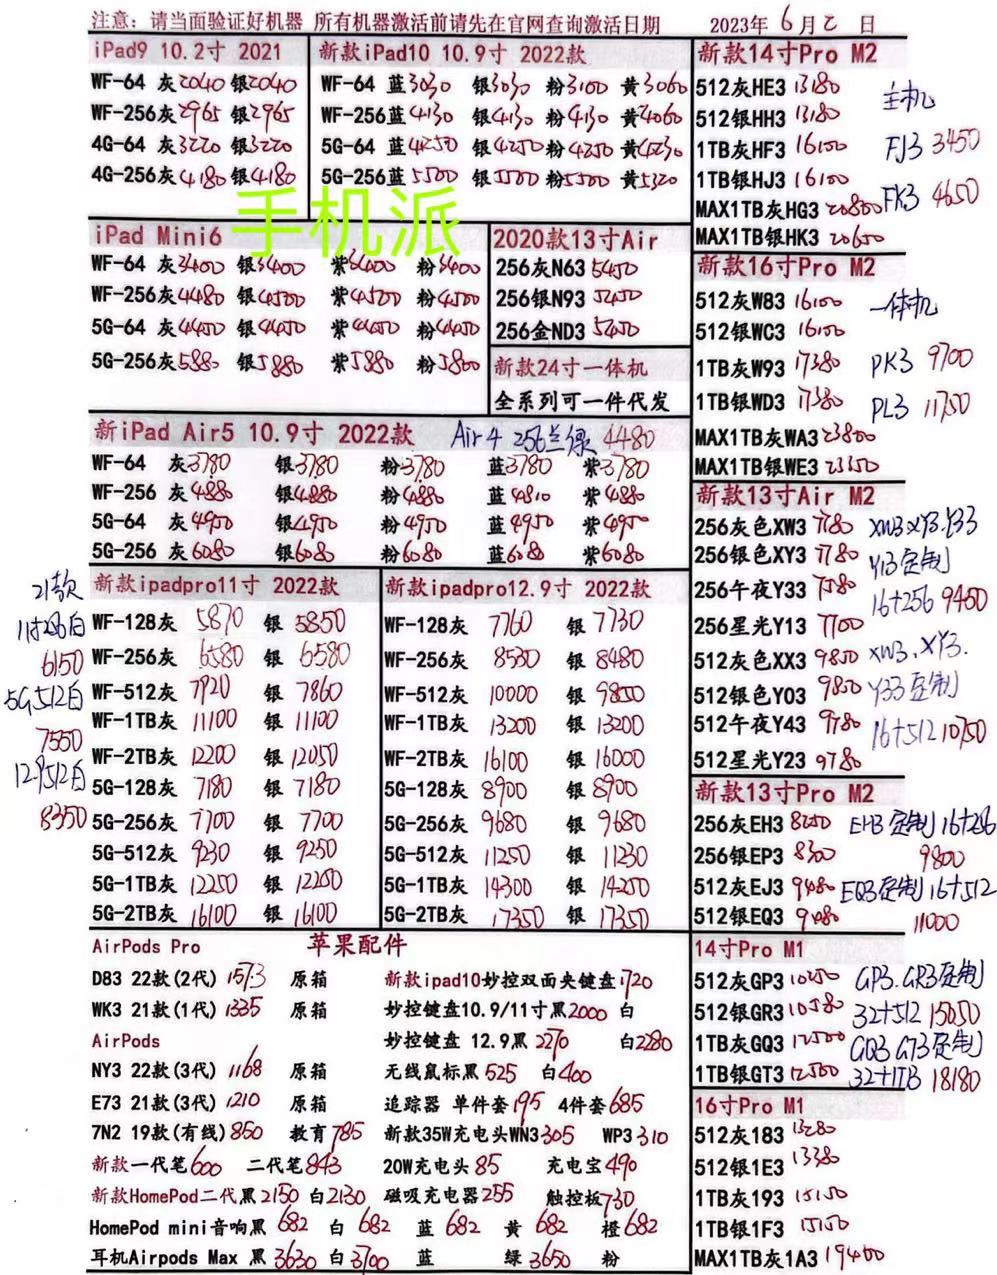 注意：请当面验证好机器 所有机器激活前请先在官网查询激活日期 2023年 6月 2 日
iPad9 10.2寸 2021
WF-64 灰2040 银2040
WF-256灰2965 银2965
4G-64 灰3220 银3220
4G-256灰4180 银4180
新款iPad10 10.9寸 2022款
WF-64 蓝3030 银3030 粉3100 黄3060
WF-256蓝4130 银4130 粉4130 黄4060
5G-64 蓝4250 银4250 粉4250 黄4230
5G-256蓝5500 银5500 粉5500 黄5320
手机派
iPad Mini6
WF-64 灰3400 银3400 紫3400 粉3400
WF-256灰4480 银4500 紫4500 粉4500
5G-64 灰4450 银4450 紫4450 粉4450
5G-256灰5880 银5880 紫5880 粉5800
2020款13寸Air
256灰N63 5450
256银N93 5450
256金ND3 5450
新款24寸一体机
全系列可一件代发
新iPad Air5 10.9寸 2022款 Air4 256兰绿 4480
WF-64 灰3780 银3780 粉3780 蓝3780 紫3780
WF-256 灰4880 银4880 粉4880 蓝4810 紫4880
5G-64 灰4950 银4950 粉4950 蓝4950 紫4950
5G-256 灰6080 银6080 粉6080 蓝6080 紫6080
21款
11寸256白
6150
5G512白
7550
12.9512白
8350
新款ipadpro11寸 2022款
WF-128灰 5870 银 5850
WF-256灰 6580 银 6580
WF-512灰 7920 银 7860
WF-1TB灰 11100 银 11100
WF-2TB灰 12200 银 12050
5G-128灰 7180 银 7180
5G-256灰 7700 银 7700
5G-512灰 9230 银 9250
5G-1TB灰 12250 银 12250
5G-2TB灰 16100 银 16100
新款ipadpro12.9寸 2022款
WF-128灰 7760 银 7730
WF-256灰 8530 银 8480
WF-512灰 10000 银 9850
WF-1TB灰 13200 银 13200
WF-2TB灰 16100 银 16000
5G-128灰 8900 银 8900
5G-256灰 9680 银 9680
5G-512灰 11250 银 11230
5G-1TB灰 14300 银 14250
5G-2TB灰 17350 银 17350
苹果配件
AirPods Pro
D83 22款(2代) 1573 原箱
WK3 21款(1代) 1335 原箱
AirPods
NY3 22款(3代) 1168 原箱
E73 21款(3代) 1210 原箱
7N2 19款(有线) 850 教育 785
新款一代笔600 二代笔843
新款HomePod二代黑2150 白2130
HomePod mini音响黑 682 白 682 蓝 682 黄 682 橙682
耳机Airpods Max 黑 3630 白3700 蓝 绿 3650 粉
新款ipad10妙控双面夹键盘1720
妙控键盘10.9/11寸黑2000 白
妙控键盘 12.9黑 2270 白2280
无线鼠标黑525 白400
追踪器 单件套195 4件套685
新款35W充电头WN3 305 WP3 310
20W充电头85 充电宝490
磁吸充电器255 触控板730
新款14寸Pro M2
512灰HE3 13180
512银HH3 13180
1TB灰HF3 16100
1TB银HJ3 16100
MAX1TB灰HG3 20800
MAX1TB银HK3 20650
主机
FJ3 3450
FK3 4650
新款16寸Pro M2
512灰W83 16100
512银WC3 16100
1TB灰W93 17380
1TB银WD3 17380
MAX1TB灰WA3 23800
MAX1TB银WE3 23350
一体机
PK3 9700
PL3 11750
新款13寸Air M2
256灰色XW3 7780
256银色XY3 7780
256午夜Y33 7580
256星光Y13 7700
512灰色XX3 9850
512银色Y03 9850
512午夜Y43 9780
512星光Y23 9780
XW3.XY3.Y33
Y13定制
16+256 9450
XW3.XY3.
Y33定制
16+512 10750
新款13寸Pro M2
256灰EH3 8250
256银EP3 8300
512灰EJ3 9480
512银EQ3 9480
EH3定制16+256
9800
EQ3定制16+512
11000
14寸Pro M1
512灰GP3 10250
512银GR3 10580
1TB灰GQ3 12500
1TB银GT3 12500
GP3.GR3定制
32+512 15050
GQ3 GT3定制
32+1TB 18180
16寸Pro M1
512灰183 13280
512银1E3 13380
1TB灰193 15150
1TB银1F3 15150
MAX1TB灰1A3 19400